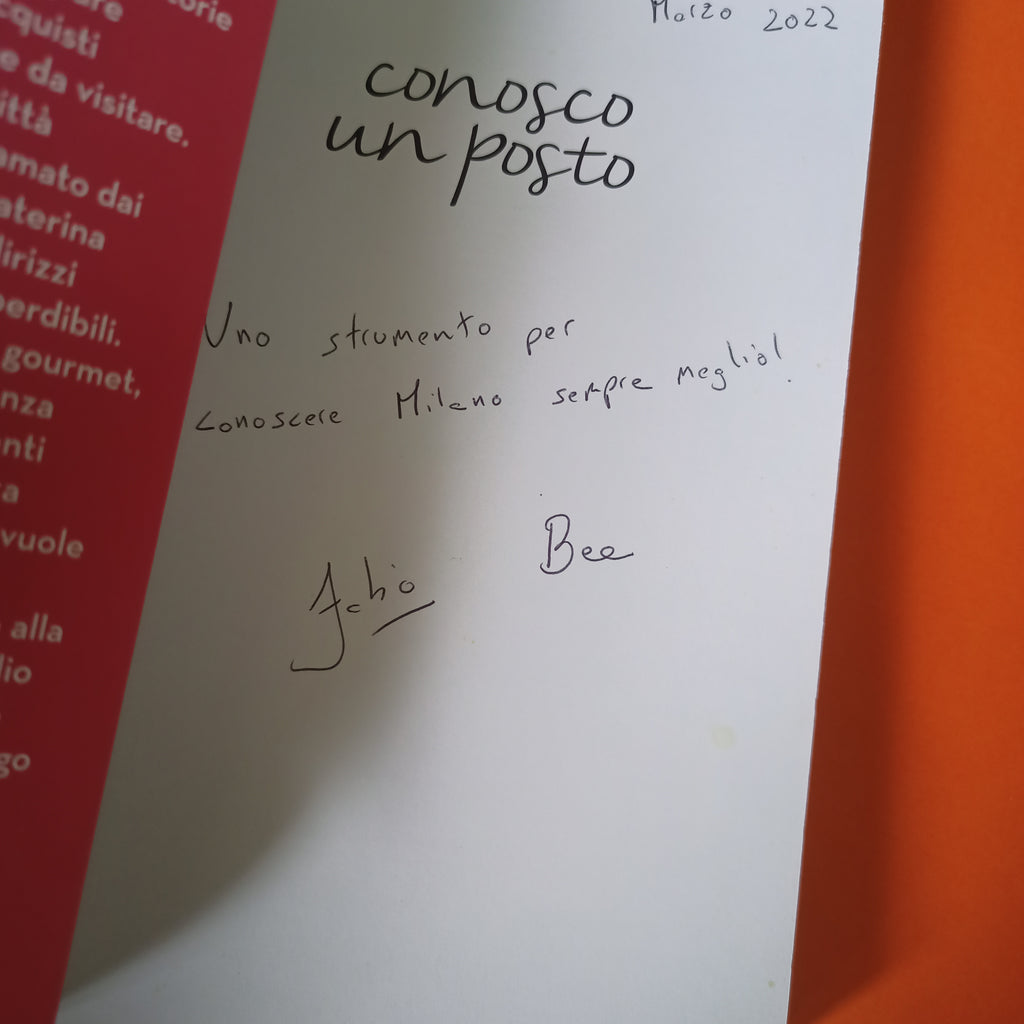 orie
cquisti
e da visitare.
ittà
amato dai
aterina
dirizzi
perdibili.
gourmet,
nza
nti
a
vuole
alla
lio
go
Marzo 2022
conosco
un posto
Uno strumento per
conoscere Milano sempre meglio!
Bee